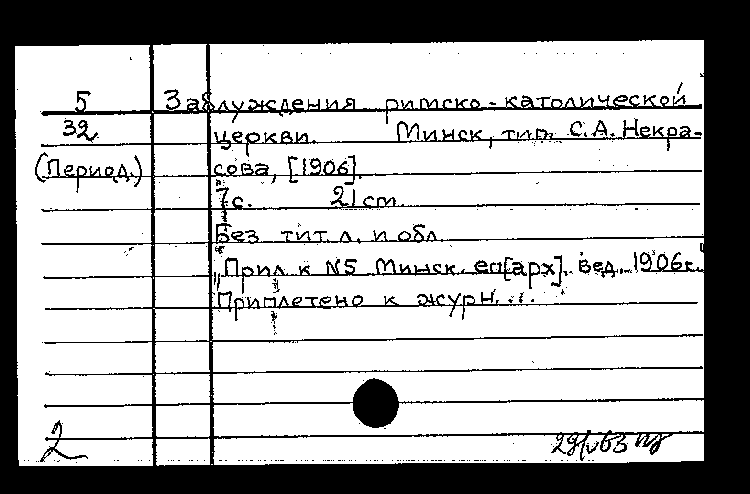 5 Заблуждения римско-католической
32 церкви. Минск, тип. С.А. Некра-
(Период.) сова, [1906].
7с. 21 cm.
Без тит. л. и обл.
"Прил. к N5 Минск. еп[арх]. вед. 1906г."
Приплетено к журн. ...
2